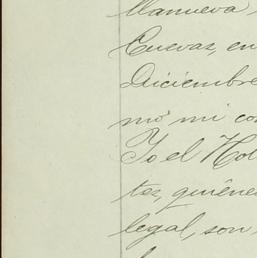 llanueva,
Cuevas, en
Diciembre
mó mi con
Yo el Not
tes, quiénes
legal, son